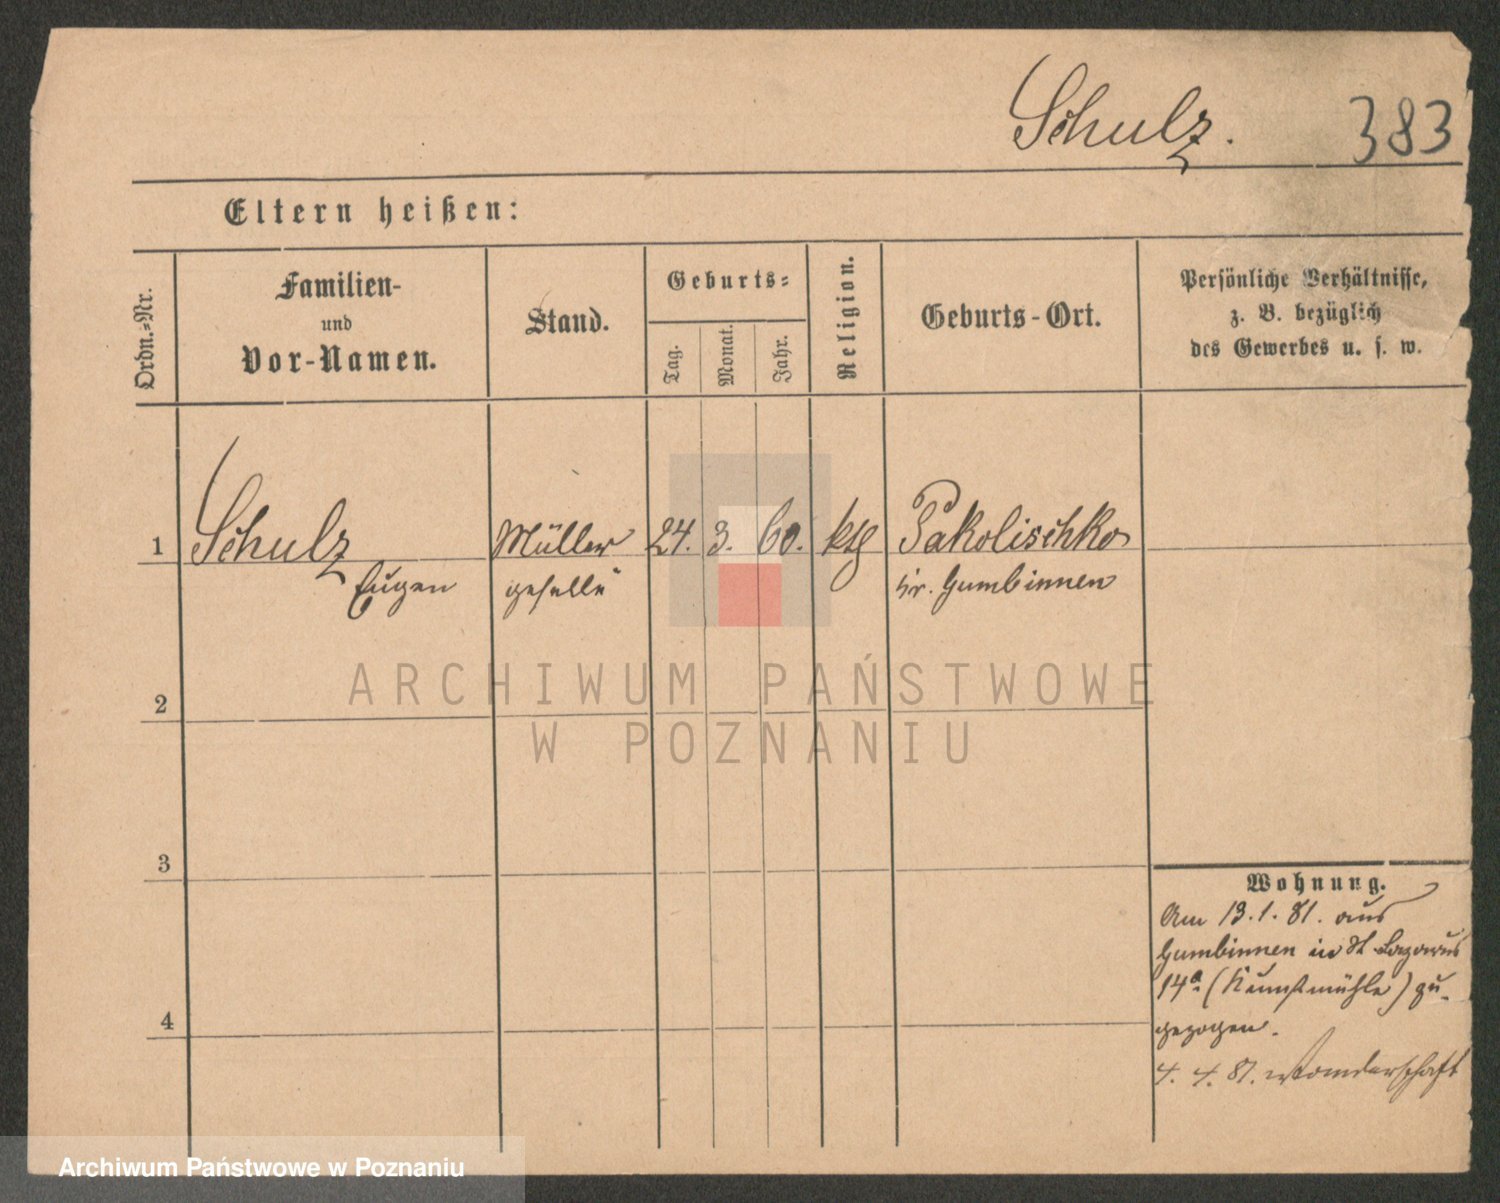 Schulz. 383
Eltern heißen:
Ordn.-Nr.
Familien-
und
Vor-Namen.
Stand.
Geburts-
Tag.
Monat.
Jahr.
Religion.
Geburts-Ort.
Persönliche Verhältnisse,
z. B. bezüglich
des Gewerbes u. s. w.
1 Schulz Müller 24. 3. 60. ktl Pakolischko
Eugen geselle Kr. Gumbinnen
2
3
4
Wohnung.
Am 13.1.81. aus
Gumbinnen in St Lazarus
14a (Kunstmühle) zu-
gezogen.
4. 4. 81. Wanderschaft
ARCHIWUM PAŃSTWOWE
W POZNANIU
Archiwum Państwowe w Poznaniu